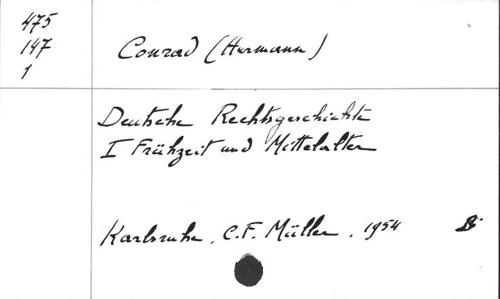 475
147
1
Conrad (Hermann)
Deutsche Rechtsgeschichte
I Frühzeit und Mittelalter
Karlsruhe, C.F. Müller, 1954